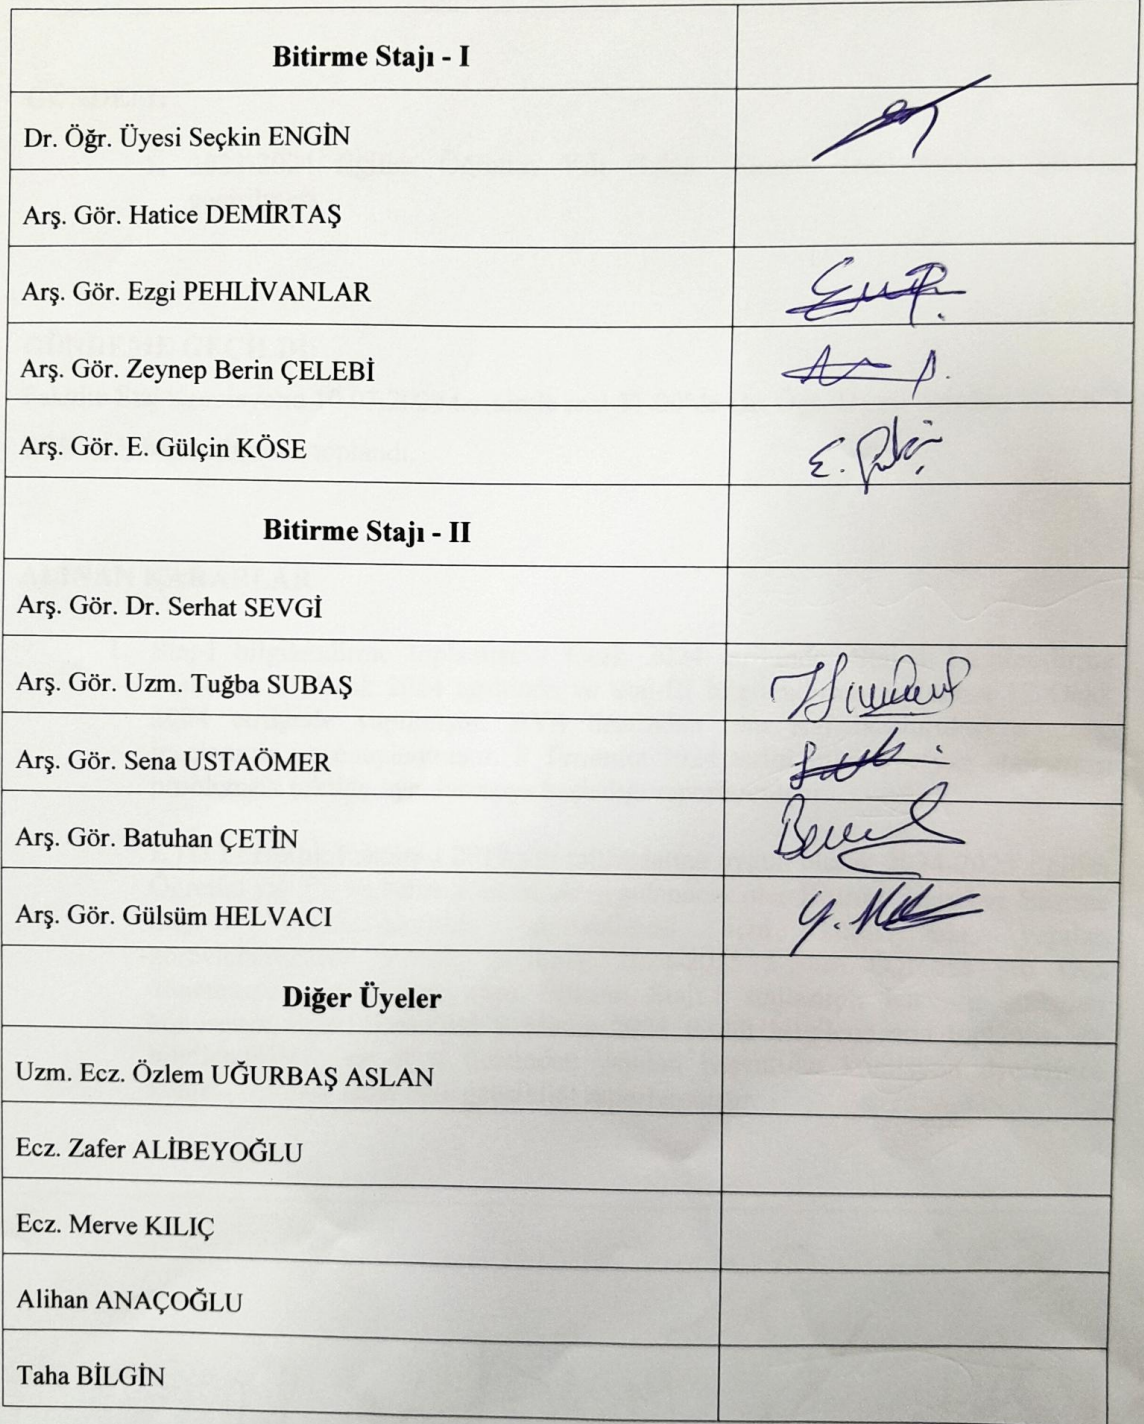 Bitirme Stajı - I
Dr. Öğr. Üyesi Seçkin ENGİN
Arş. Gör. Hatice DEMİRTAŞ
Arş. Gör. Ezgi PEHLİVANLAR
Arş. Gör. Zeynep Berin ÇELEBİ
Arş. Gör. E. Gülçin KÖSE
Bitirme Stajı - II
Arş. Gör. Dr. Serhat SEVGİ
Arş. Gör. Uzm. Tuğba SUBAŞ
Arş. Gör. Sena USTAÖMER
Arş. Gör. Batuhan ÇETİN
Arş. Gör. Gülsüm HELVACI
Diğer Üyeler
Uzm. Ecz. Özlem UĞURBAŞ ASLAN
Ecz. Zafer ALİBEYOĞLU
Ecz. Merve KILIÇ
Alihan ANAÇOĞLU
Taha BİLGİN